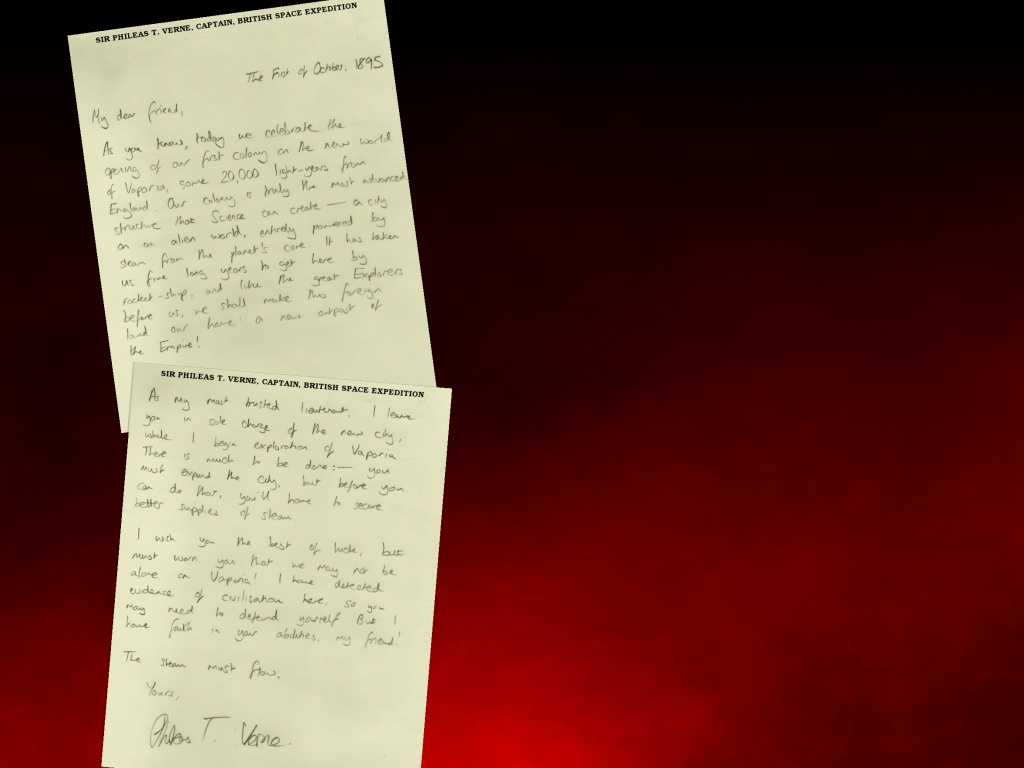 SIR PHILEAS T. VERNE, CAPTAIN, BRITISH SPACE EXPEDITION
The First of October, 1895
My dear friend,
As you know, today we celebrate the
opening of our first colony on the new world
of Vaporia, some 20,000 light-years from
England. Our colony is truly the most advanced
structure that Science can create — a city
on an alien world, entirely powered by
steam from the planet's core. It has taken
us five long years to get here by
rocket-ship, and like the great Explorers
before us, we shall make this foreign
land our home: a new outpost of
the Empire!
SIR PHILEAS T. VERNE, CAPTAIN, BRITISH SPACE EXPEDITION
As my most trusted lieutenant, I leave
you in sole charge of the new city,
while I begin exploration of Vaporia
There is much to be done:— you
must expand the city, but before you
can do that, you'll have to secure
better supplies of steam
I wish you the best of luck, but
must warn you that we may not be
alone on Vaporia! I have detected
evidence of civilisation here, so you
may need to defend yourself But I
have faith in your abilities, my friend!
The steam must flow,
Yours,
Phileas T. Verne.